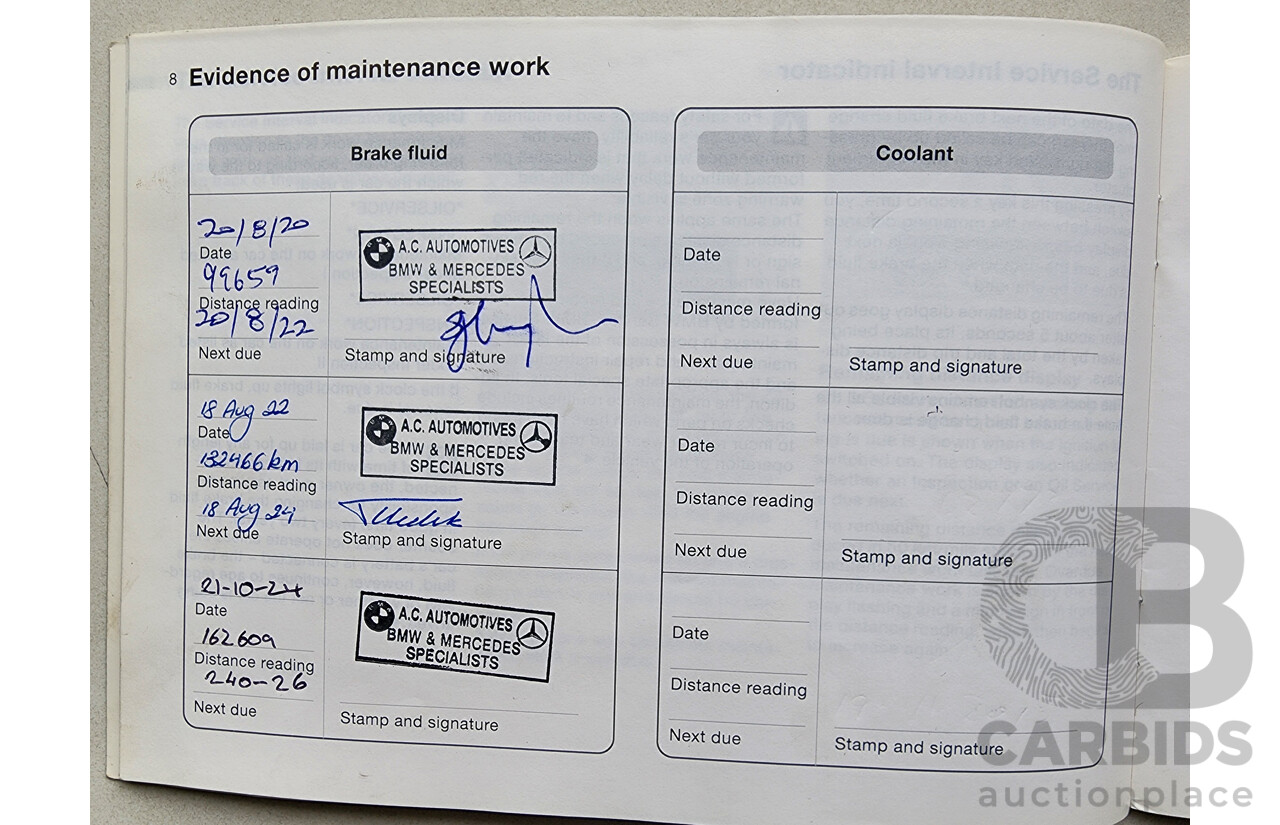 8 Evidence of maintenance work
Brake fluid
20/8/20
Date
99659
Distance reading
20/8/22
Next due
A.C. AUTOMOTIVES
BMW & MERCEDES
SPECIALISTS
Stamp and signature
18 Aug 22
Date
132466km
Distance reading
18 Aug 24
Next due
A.C. AUTOMOTIVES
BMW & MERCEDES
SPECIALISTS
Stamp and signature
21-10-24
Date
162609
Distance reading
240-26
Next due
A.C. AUTOMOTIVES
BMW & MERCEDES
SPECIALISTS
Stamp and signature
Coolant
Date
Distance reading
Next due
Stamp and signature
Date
Distance reading
Next due
Stamp and signature
Date
Distance reading
Next due
Stamp and signature
CARBIDS
auctionplace